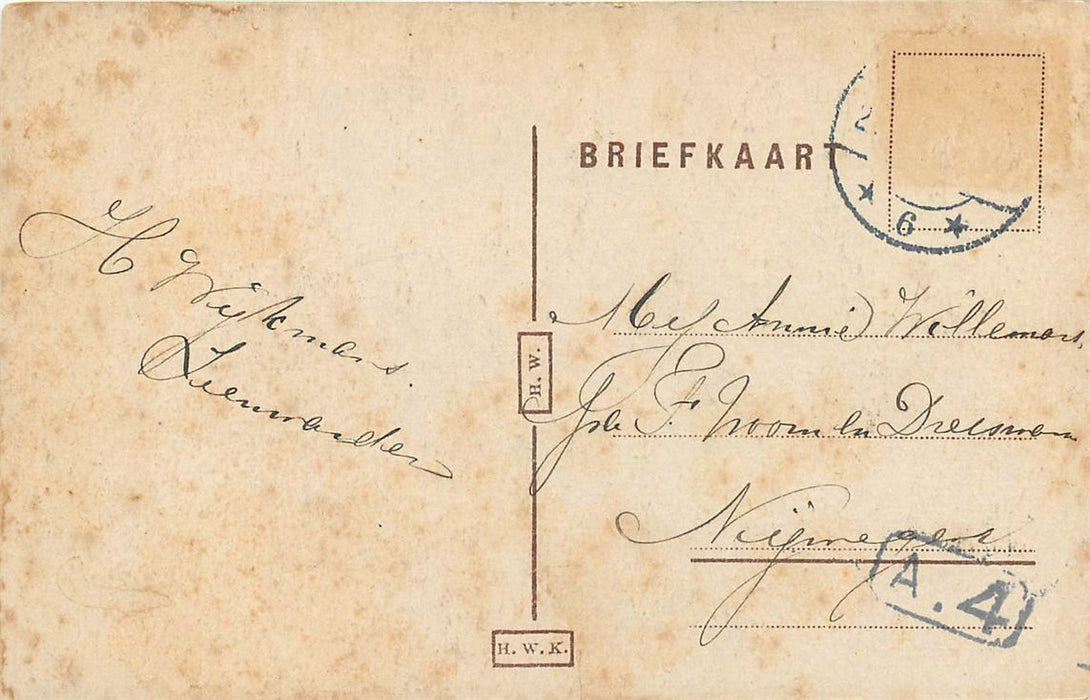 BRIEFKAART
2
6
H Wijkmans.
Leeuwarden
Mej Annie Willemars,
F. Vroom en Dreesman
Nijmegen
H. W.
A. 4
H. W. K.